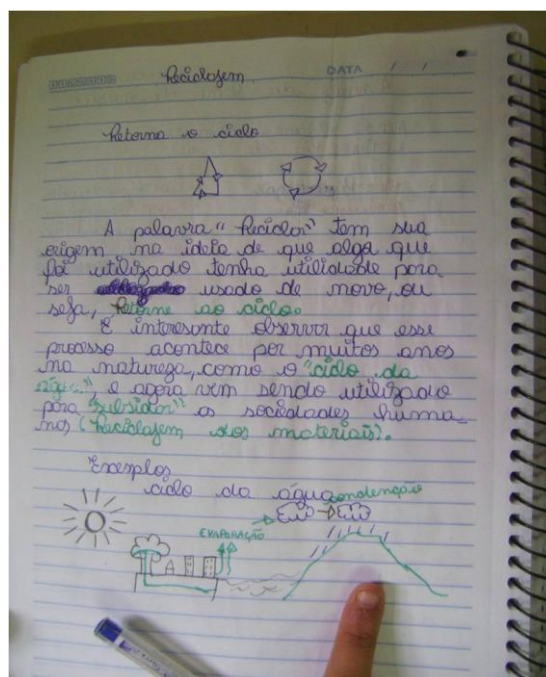 Reciclagem
DATA / /
Retorna o ciclo
A palavra "Reciclar" tem sua
origem na ideia de que algo que
foi utilizado tenha utilidade para
ser usado de novo, ou
seja, retorne ao ciclo.
É interesante observar que esse
processo acontece por muitos anos
na natureza, como o "ciclo da
água", e agora vem sendo utilizado
para "subsidor" as sociedades huma_
nas (Reciclagem dos materiais).
Exemplos
ciclo da água
condenção
EVAPORAÇÃO